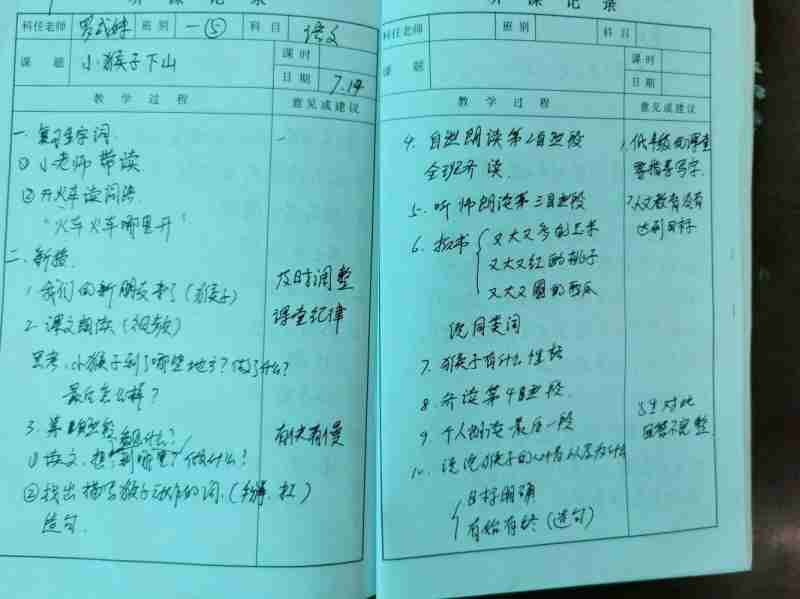 听课记录
科任老师 罗 班别 一⑤ 科目 语文
课题 小猴子下山 课时
日期 7.14
教学过程 意见或建议
一、复习字词
① 小老师带读
② 开火车读词语
“火车火车哪里开”
二、新授
1、我们的新朋友来了(猴子)
2、课文朗读(视频)
思考,小猴子到了哪些地方?做了什么?
最后怎样?
3、第1自然段
看见什么?
① 读文,想,到哪里?做什么?
② 找出描写猴子动作的词,(掰、扛)
造句.
及时调整
课堂纪律
有快有慢
听课记录
科任老师 班别 科目
课题 课时
日期
教学过程 意见或建议
4、自由朗读第2自然段
全班齐读.
5、听师朗读第三自然段
6、板书 又大又多的玉米
又大又红的桃子
又大又圆的西瓜
说同类词
7、猴子有什么性格
8、齐读第4自然段.
9、个人朗读最后一段
10、说说猴子的
目标明确
有始有终(造句)
1、低年级的课堂
要指导写字.
2、人文教育没有
达到目标
对比
回答不完整